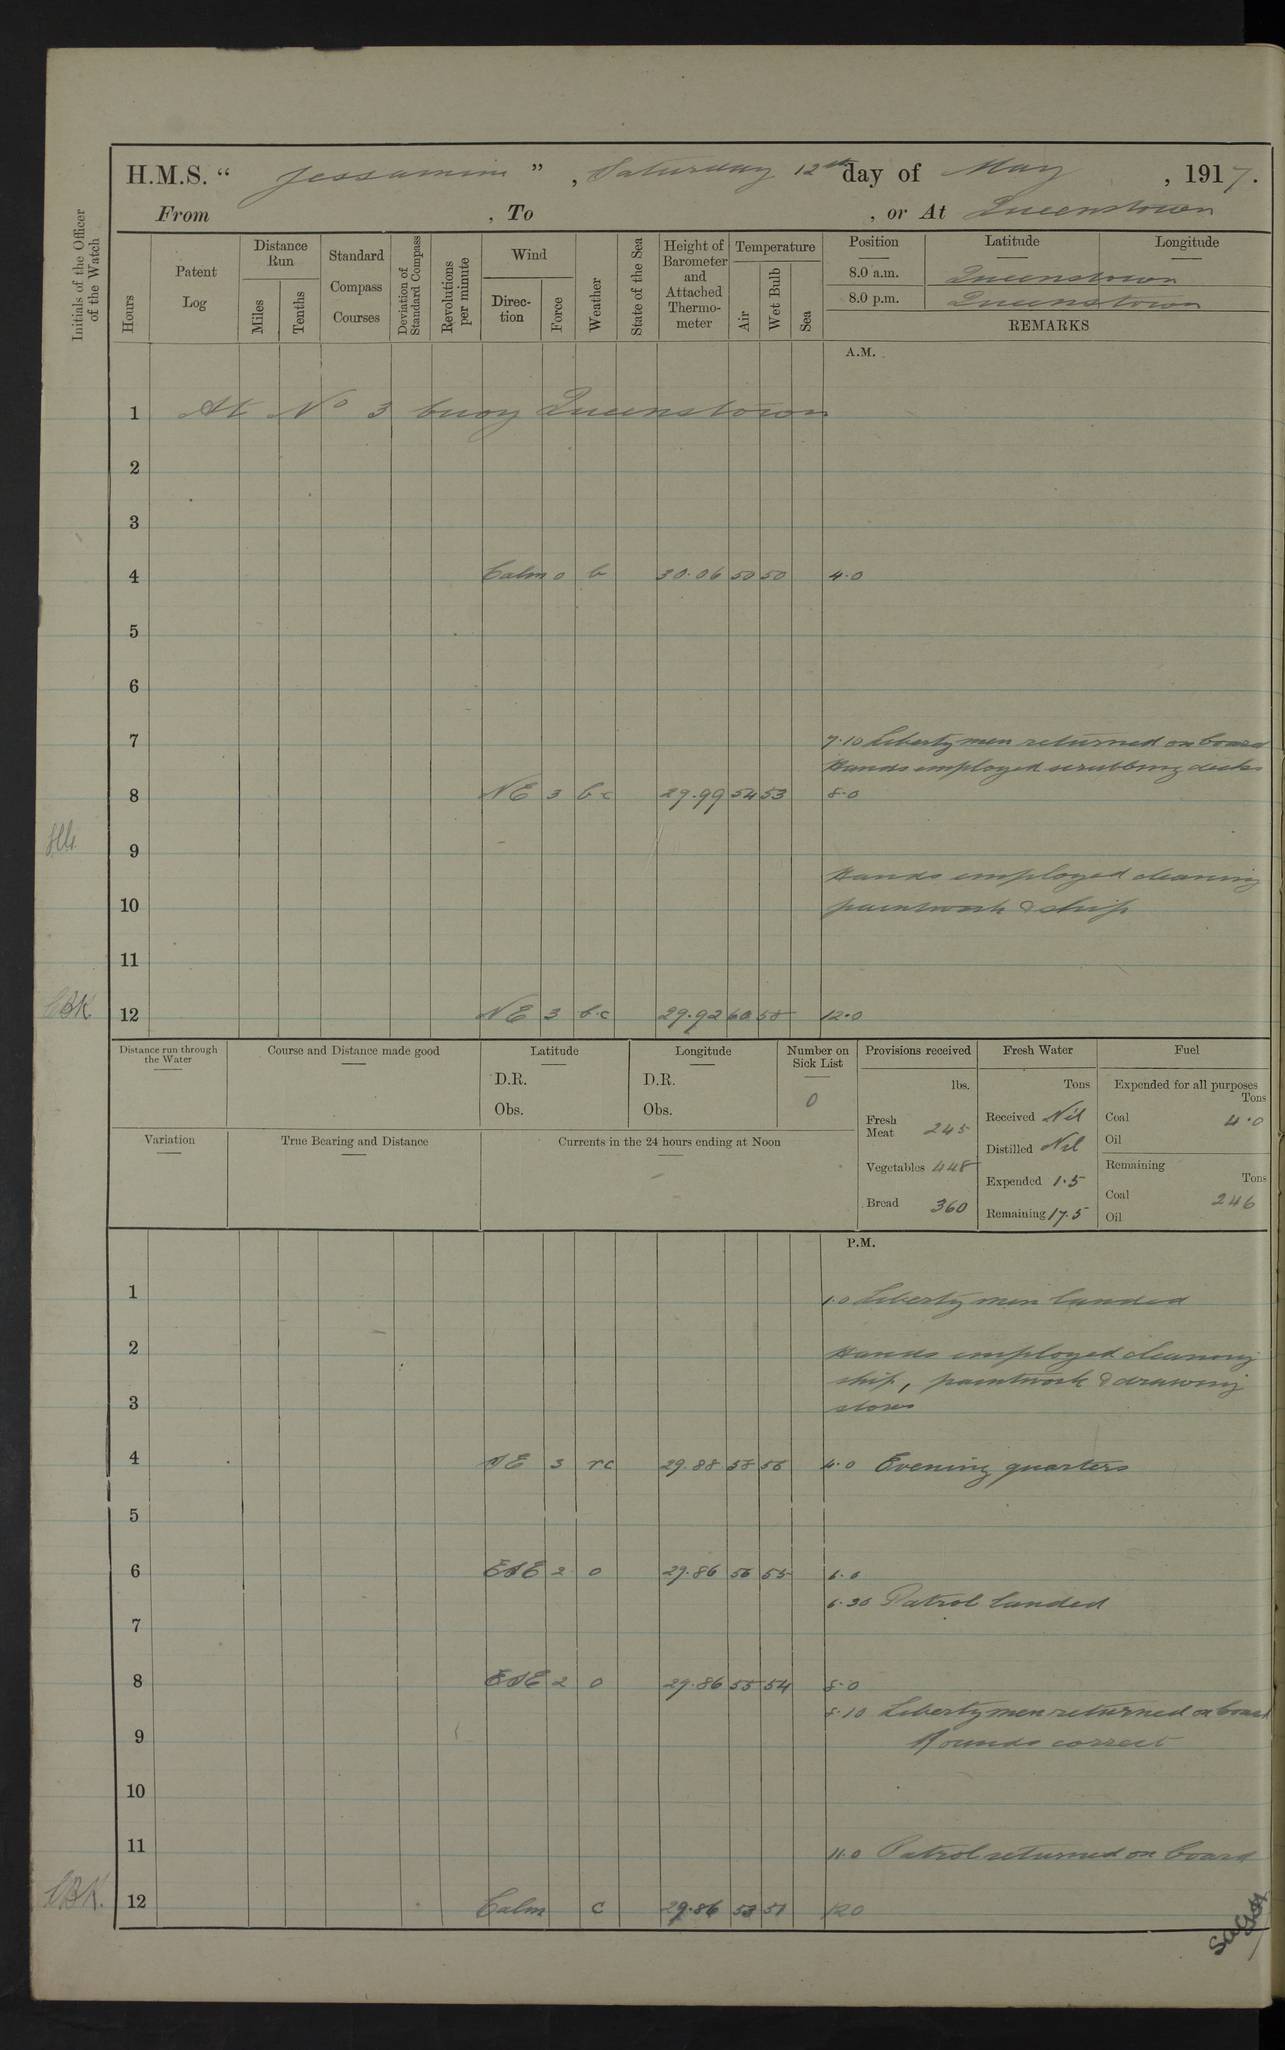 H.M.S. “ Jessamine ” , Saturday 12th day of May , 1917.
From , To , or At Queenstown
Initials of the Officer of the Watch
Hours
Patent Log
Distance Run
Miles
Tenths
Standard Compass Courses
Deviation of Standard Compass
Revolutions per minute
Wind
Direc-tion
Force
Weather
State of the Sea
Height of Barometer and Attached Thermo-meter
Temperature
Air
Wet Bulb
Sea
Position Latitude Longitude
8.0 a.m. Queenstown
8.0 p.m. Queenstown
REMARKS
A.M.
1 At No 3 buoy Queenstown
2
3
4 Calm 0 b 30.06 50 50 4.0
5
6
7 7.10 Liberty men returned on board
Hands employed scrubbing decks
8 NE 3 b.c 29.99 54 53 8.0
9
Hands employed cleaning
10 paintwork & ship
11
CBK. 12 NE 3 b.c 29.92 60 58 12.0
Distance run through the Water
Course and Distance made good
Latitude
D.R.
Obs.
Longitude
D.R.
Obs.
Number on Sick List
0
Variation
True Bearing and Distance
Currents in the 24 hours ending at Noon
Provisions received
lbs.
Fresh Meat 245
Vegetables 448
Bread 360
Fresh Water
Tons
Received Nil
Distilled Nil
Expended 1.5
Remaining 17.5
Fuel
Expended for all purposes
Tons
Coal 4.0
Oil
Remaining
Tons
Coal 246
Oil
P.M.
1 1.0 Liberty men landed
2 Hands employed cleaning
ship, paintwork & drawing
3 stores
4 SE 3 rc 29.88 58 56 4.0 Evening quarters
5
6 ESE 2 0 29.86 56 55 6.0
6.30 Patrol landed
7
8 ESE 2 0 29.86 55 54 8.0
8.10 Liberty men returned on board
9 Rounds correct
10
11 11.0 Patrol returned on board
CBK. 12 Calm c 29.86 53 51 120